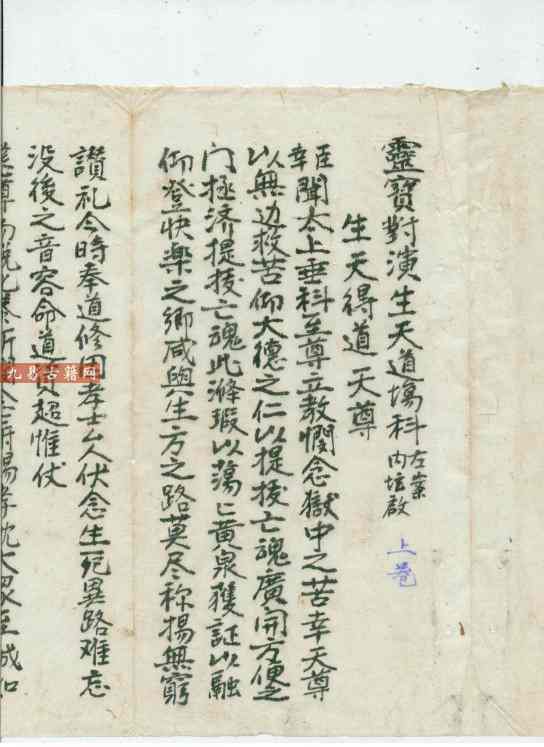 靈寶對演生天道塲科 左案 内坛啟 上卷
生天得道 天尊
臣幸聞太上垂科至尊立教憫念獄中之苦幸天尊
以無边救苦仰大德之仁以提拔亡魂廣開方便之
门拯济提拔亡魂此滌瑕以荡亡黄泉獲証以融
仰登快樂之鄉咸與生方之路莫尽称揚無窮
讃礼今時奉道修因孝士厶人伏念生死異路难忘
没後之音容命道 超惟仗
九易古籍网